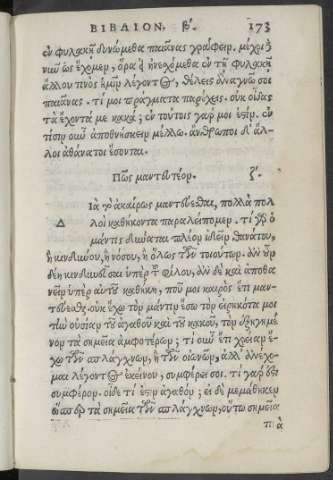 ΒΙΒΛΙΟΝ. Β'. 173
ἐν φυλακῇ δυνώμεθα παιᾶνας γράφειν. μέχρι
νῦν ὡς ἔχομεν, ὅρα εἰ ἠνεχόμεθα ἐν τῇ φυλακῇ
ἄλλου τινὸς ἡμῖν λέγοντος, θέλεις ἀναγνῶ σοι
παιᾶνας. τί μοι πράγματα παρέχεις. οὐκ οἶδας
τὰ ἔχοντά με κακά; ἐν τούτοις γάρ μοι ἐστίν. ἐν
τίσιν οὖν ἀποθνήσκειν μέλλω. ἄνθρωποι δ' ἄλ-
λοι ἀθάνατοι ἔσονται.
Πῶς μαντευτέον. ζ'.
Διὰ τὸ ἀκαίρως μαντεύεσθαι, πολλὰ πολ
λοὶ καθήκοντα παραλείπομεν. τί γὰρ ὁ
μάντις δύναται πλέον ἰδεῖν θανάτου,
ἢ κινδύνου, ἢ νόσου, ἢ ὅλως τῶν τοιούτων. ἂν οὖν
δέῃ κινδυνεῦσαι ὑπὲρ τοῦ φίλου, ἂν δὲ καὶ ἀποθα
νεῖν ὑπὲρ αὐτοῦ καθήκῃ, ποῦ μοι καιρὸς ἔτι μαν-
τεύεσθαι. οὐκ ἔχω τὸν μάντιν ἔσω τὸν εἰρηκότα μοι
τὴν οὐσίαν τοῦ ἀγαθοῦ καὶ τοῦ κακοῦ, τὸν ἐξηγημέ
νον τὰ σημεῖα ἀμφοτέρων; τί οὖν ἔτι χρείαν ἔ-
χω τῶν σπλάγχνων, ἢ τῶν οἰωνῶν, ἀλλ' ἀνέχο-
μαι λέγοντος ἐκείνου, συμφέρει σοι. τί γάρ ἐστι
συμφέρον. οἶδε τί ἐστιν ἀγαθόν; εἰ δὲ μεμάθηκεν
ὥσπερ τὰ σημεῖα τῶν σπλάγχνων, οὕτω σημεῖα